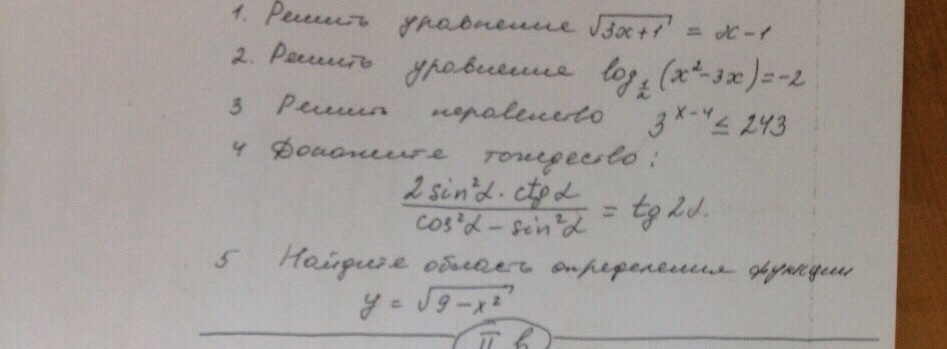 1. Решить уравнение √3x+1 = x-1
2. Решить уравнение log½ (x²-3x)=-2
3 Решить неравенство 3^x-4 ≤ 243
4 Докажите тождество:
2 sin²α · ctg α / cos²α - sin²α = tg 2α.
5 Найдите область определения функции
y = √9-x²
II в